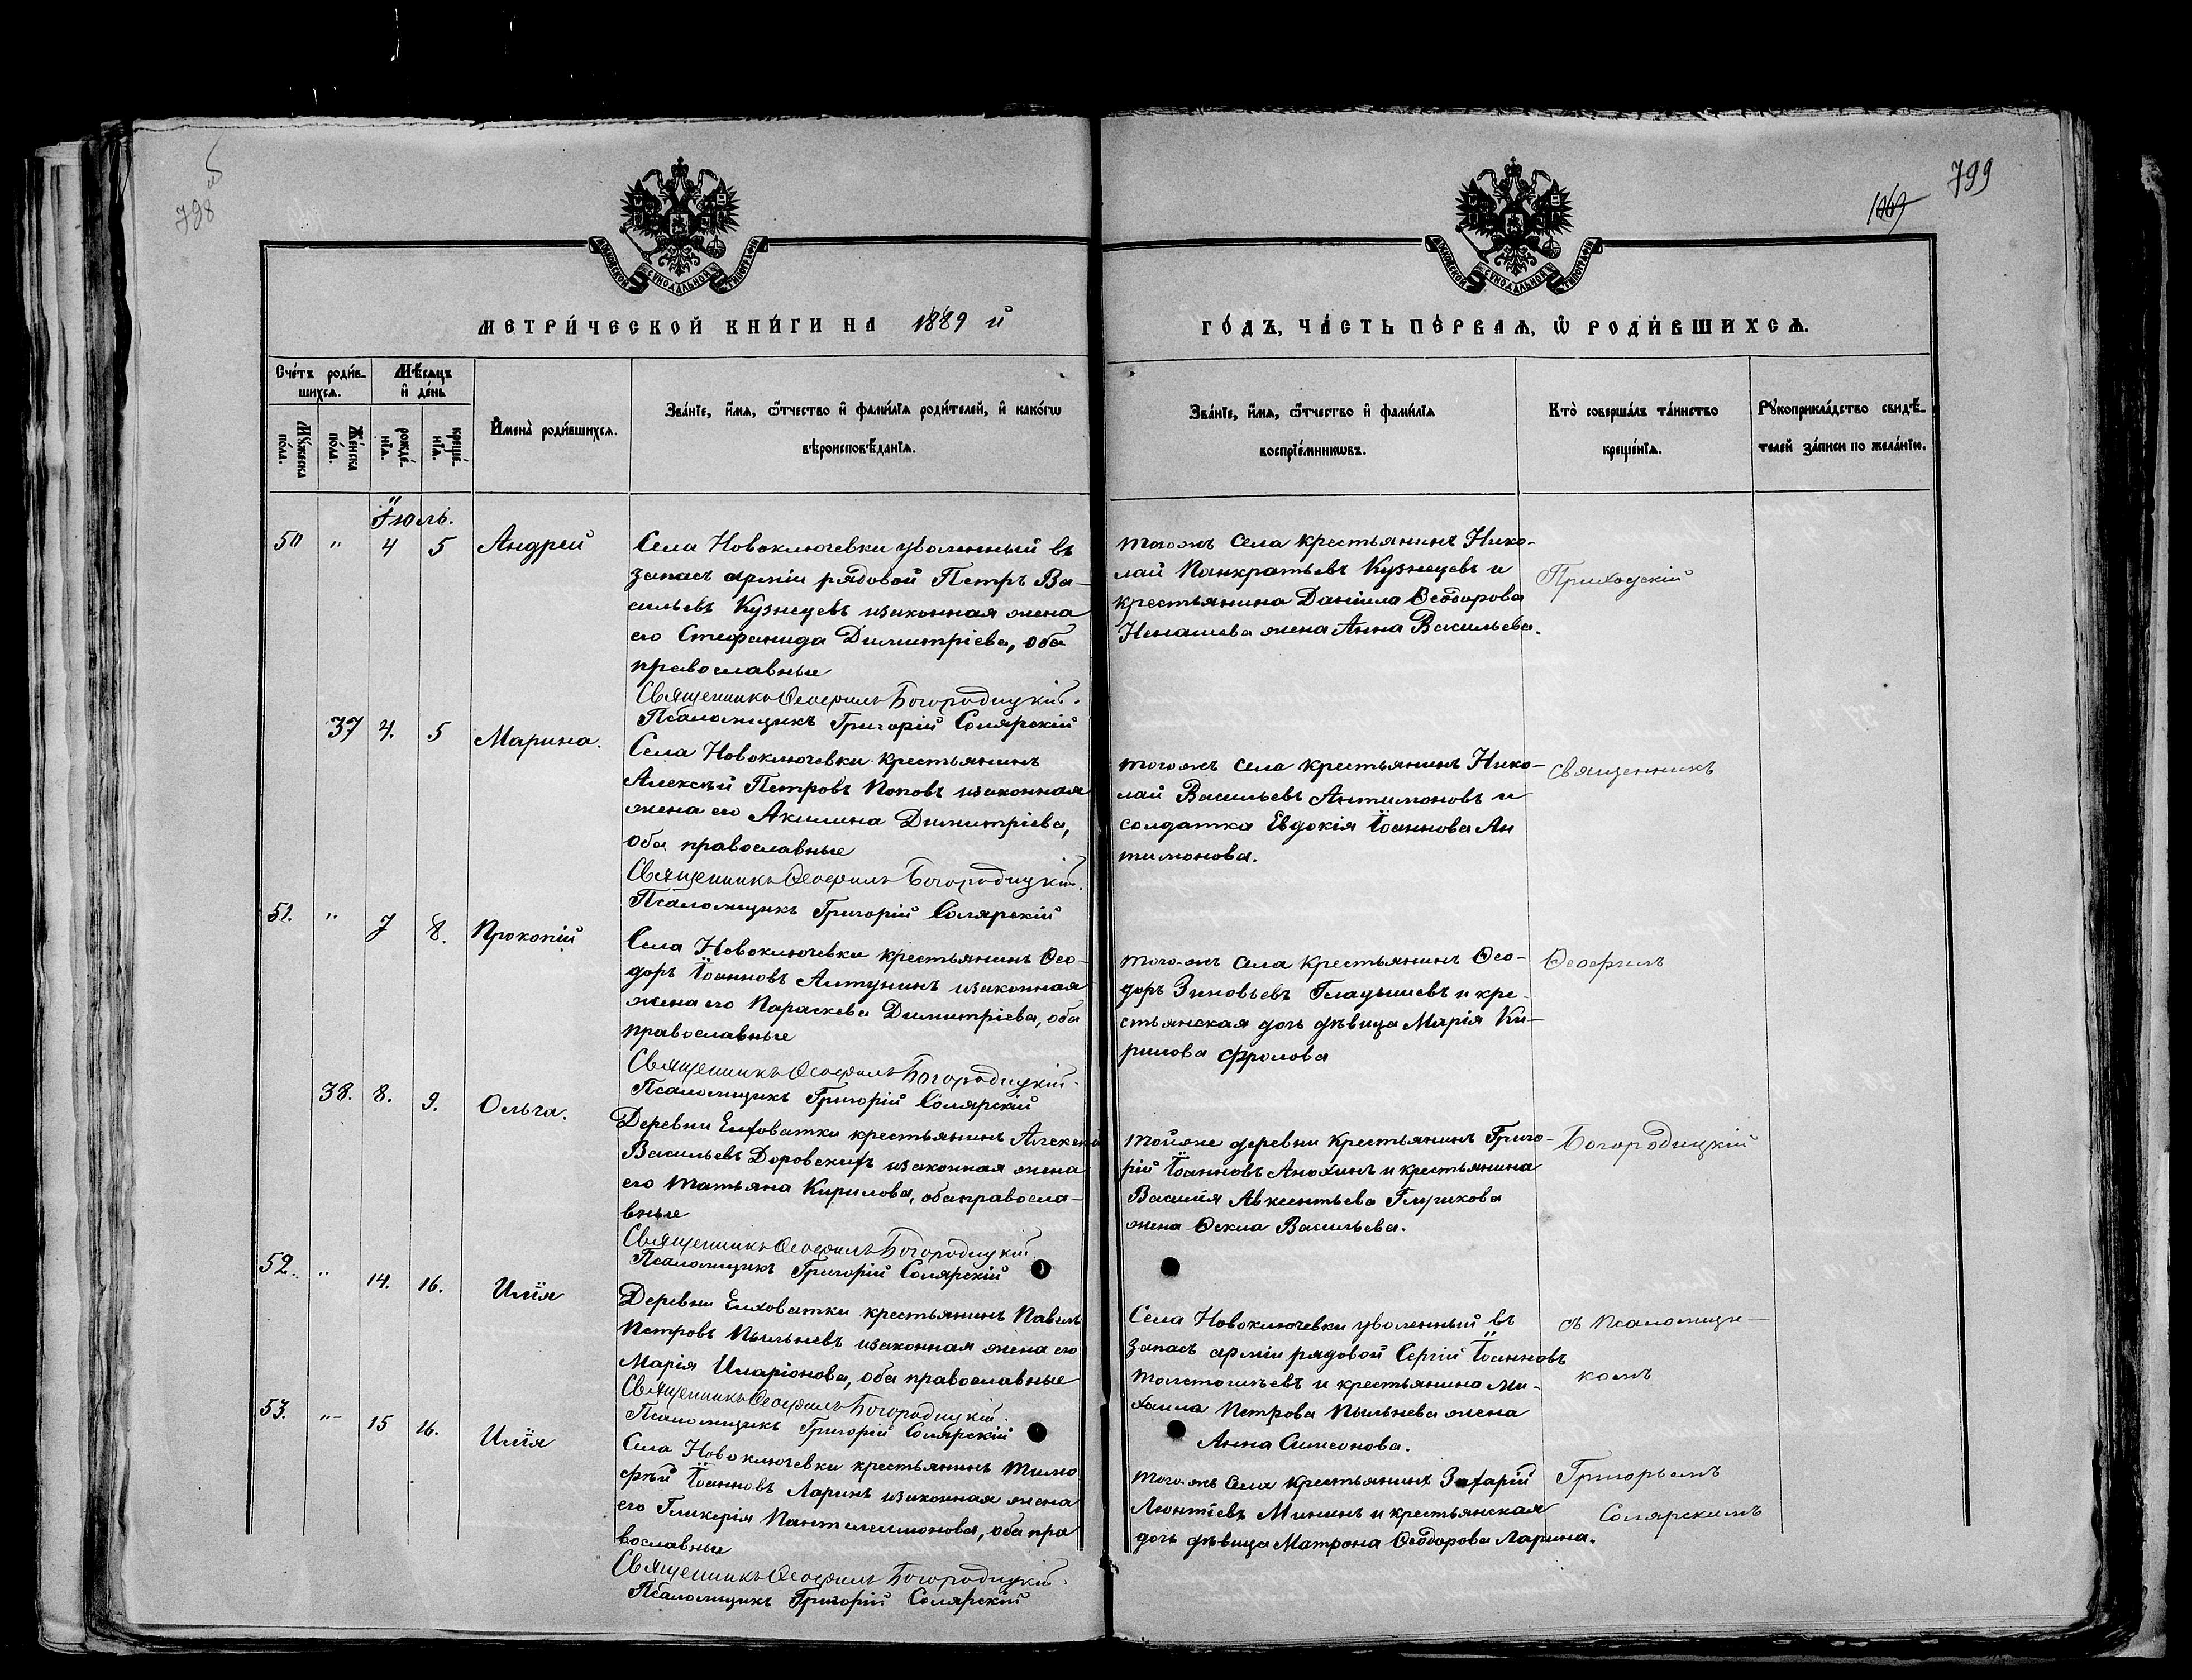 798 об
799
1069
МОСКОВСКОЙ СѴНОДАЛЬНОЙ ТИПОГРАФІИ
МОСКОВСКОЙ СѴНОДАЛЬНОЙ ТИПОГРАФІИ
МЕТРИ́ЧЕСКОЙ КНИ́ГИ НА 1889 й
ГО́ДЪ, ЧА́СТЬ ПЕ́РВАЯ, Ѡ҆ РОДИ́ВШИХСЯ.
Сче́тъ роди́в-
шихся.
Мѣ́сяцъ
и҆ де́нь
Мꙋ́жеска
по́ла.
Же́нска
по́ла.
рожде́-
нїя.
креще́-
нїя.
И҆мена̀ роди́вшихся.
Зва́нїе, и҆́мя, ѻ҆́тчество и҆ фами́лїя роди́телей, и҆ како́гѡ
вѣроисповѣ́данїя.
Зва́нїе, и҆́мя, ѻ҆́тчество и҆ фами́лїя
воспрїе́мникѡвъ.
Кто̀ соверша́лъ та́инство
креще́нїя.
Рꙋкоприкла́дство свидѣ́-
телей за́писи по жела́нїю.
Іюль.
50 " 4 5 Андрей
Села Новоключевки уволенный въ
запасъ арміи рядовой Петръ Ва-
сильевъ Кузнецевъ изаконная жена
его Стефанида Димитріева, оба
православные
Священникъ Ѳеофилъ Богородицкій.
Псаломщикъ Григорій Солярскій
тогожъ села крестьянинъ Нико-
лай Панкратьевъ Кузнецевъ и
крестьянина Даніила Ѳеодорова
Ненашева жена Анна Васильева.
Приходскій
37 4. 5 Марина.
Села Новоключевки крестьянинъ
Алексѣй Петровъ Поповъ изаконная
жена его Акилина Димитріева,
оба православные
Священникъ Ѳеофилъ Богородицкій.
Псаломщикъ Григорій Солярскій
тогожъ села крестьянинъ Нико-
лай Васильевъ Антимоновъ и
солдатка Евдокія Іоаннова Ан
тимонова.
священникъ
51. " 7 8. Прокопій
Села Новоключевки крестьянинъ Ѳео-
доръ Іоанновъ Алтунинъ изаконная
жена его Параскева Димитріева, оба
православные
Священникъ Ѳеофилъ Богородицкій.
Псаломщикъ Григорій Солярскій
того-жъ села крестьянинъ Ѳео-
доръ Зиновьевъ Гладышевъ и кре-
стьянская дочь дѣвица Марія Ки-
рилова Фролова
Ѳеофилъ
38. 8. 9. Ольга.
Деревни Елховатки крестьянинъ Алексѣй
Васильевъ Боровскихъ изаконная жена
его Татьяна Кирилова, обаправосла-
вные
Священникъ Ѳеофилъ Богородицкій
Псаломщикъ Григорій Солярскій
тойже деревни крестьянинъ Григо-
рій Іоанновъ Анохинъ и крестьянина
Василія Авксентьева Глушкова
жена Ѳекла Васильева.
Богородицкій
52. " 14. 16. Илія
Деревни Елховатки крестьянинъ Павелъ
Петровъ Пыльневъ изаконная жена его
Марія Иларіонова, оба православные
Священникъ Ѳеофилъ Богородицкій.
Псаломщикъ Григорій Солярскій
Села Новоключевки уволенный въ
запасъ арміи рядовой Сергій Іоанновъ
Толстошеевъ и крестьянина Ми-
хаила Петрова Пыльнева жена
Анна Симеонова.
съ псаломщи-
комъ
53. " 15 16. Илія
Села Новоключевки крестьянинъ Тимо
фѣй Іоанновъ Ларинъ изаконная жена
его Гликерія Пантелеимонова, оба пра
вославные
Священникъ Ѳеофилъ Богородицкій.
Псаломщикъ Григорій Солярскій
тогожъ села крестьянинъ Захарій
Леонтіевъ Мининъ и крестьянская
дочь дѣвица Матрона Ѳеодорова Ларина.
Григорьемъ
Солярскимъ